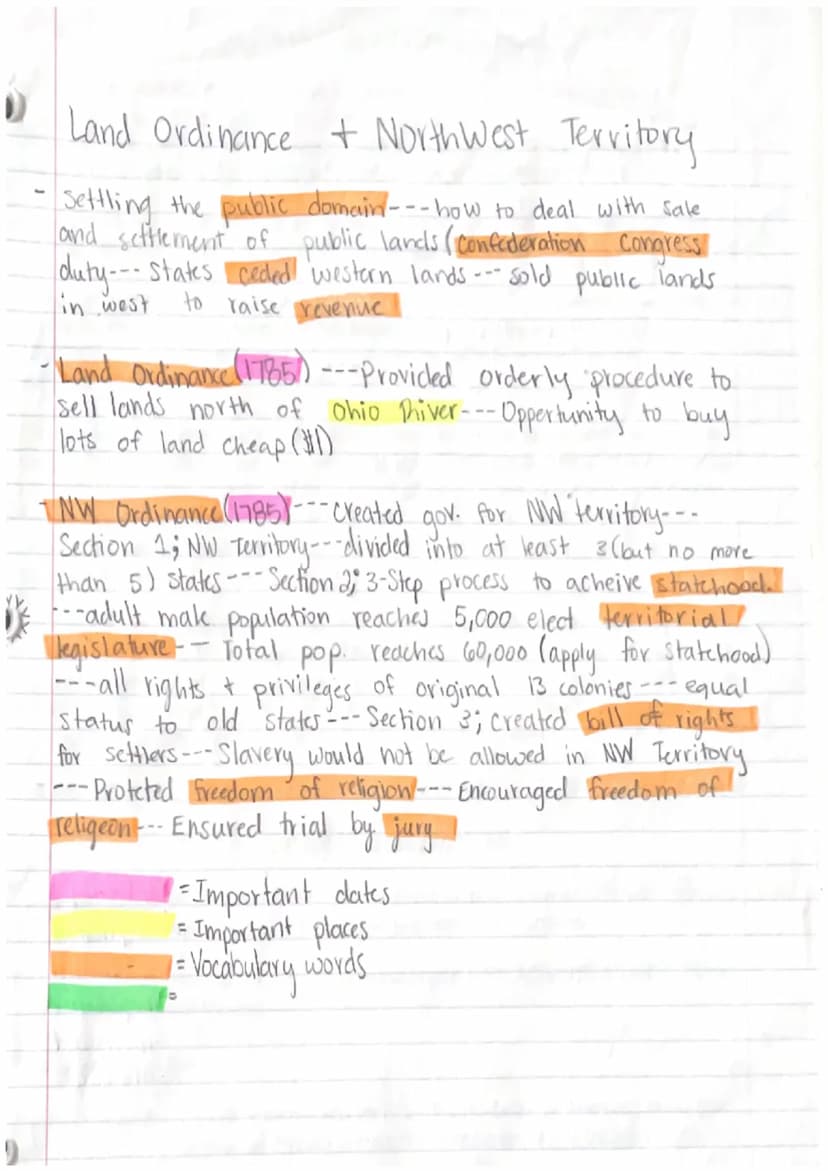 Land Ordinance + NorthWest Territory
- Settling the public domain---how to deal with sale
and settlement of public lands (Confederation Congress
duty--- States ceded western lands --- sold public lands
in west to raise revenue
- Land Ordinance (1785) ---Provided orderly procedure to
sell lands north of Ohio River--- Opportunity to buy
lots of land cheap ($1)
- NW Ordinance (1785)---created gov. for NW territory---
Section 1; NW Territory---divided into at least 3 (but no more
than 5) states --- Section 2; 3-Step process to acheive statehood.
---adult male population reaches 5,000 elect territorial
legislature-- Total pop. reaches 60,000 (apply for statehood)
---all rights + privileges of original 13 colonies --- equal
status to old states--- Section 3; created bill of rights
for settlers--- Slavery would not be allowed in NW Territory
--- Protcted freedom of religion--- Encouraged freedom of
religeon--- Ensured trial by jury
= Important dates
= Important places
= Vocabulary words
=